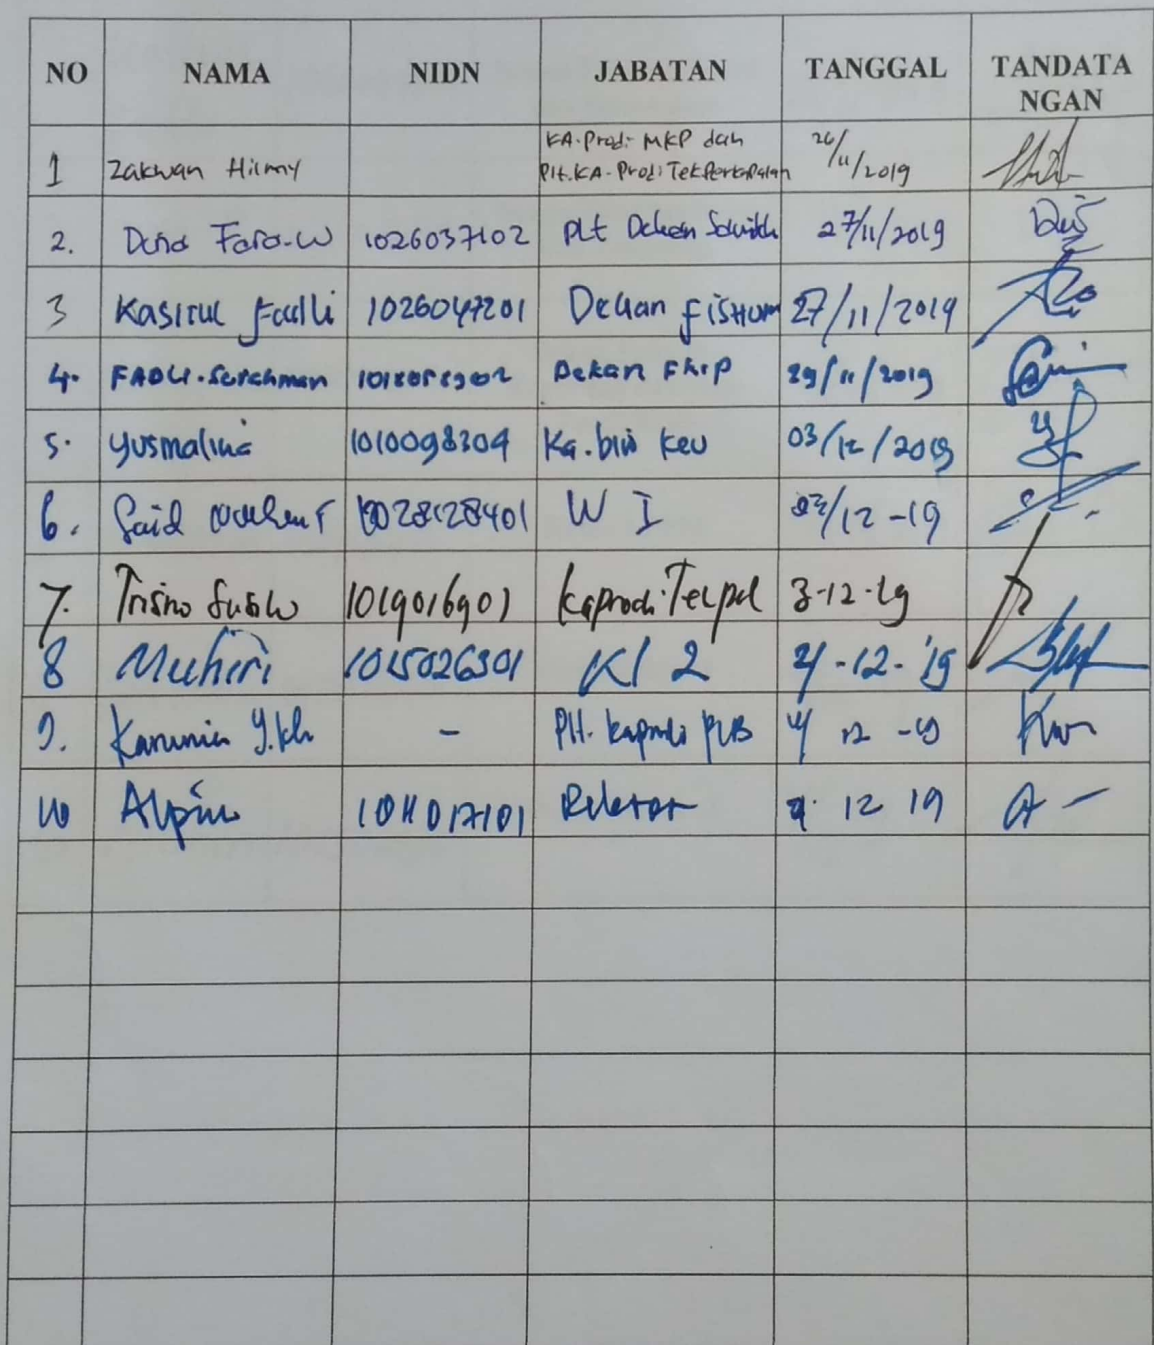 NO NAMA NIDN JABATAN TANGGAL TANDATA
NGAN
KA.Prodi MKP dan
1 Zakwan Hilmy Plt.KA-Prodi TekPerkapalan 26/11/2019
2. Dona Fara.W 1026037102 Plt Dekan 27/11/2019
3 Kasirul Fadli 1026047201 Dekan FISHUM 27/11/2019
4. FADLI.Surahman Dekan FKIP 29/11/2019
5. Yusmalina 1010098304 Ka.biro Keu 03/12/2019
6. Said 1028128401 W I 03/12-19
7. Trisno Susilo 1019016901 Kaprodi.Tekpal 3-12-19
8 Muhiri 1015026301 KI 2 4-12-'19
9. - Plt. Kaprodi PUB 4 12 -19
10 Alpino 1011017101 Rektor 4. 12 19